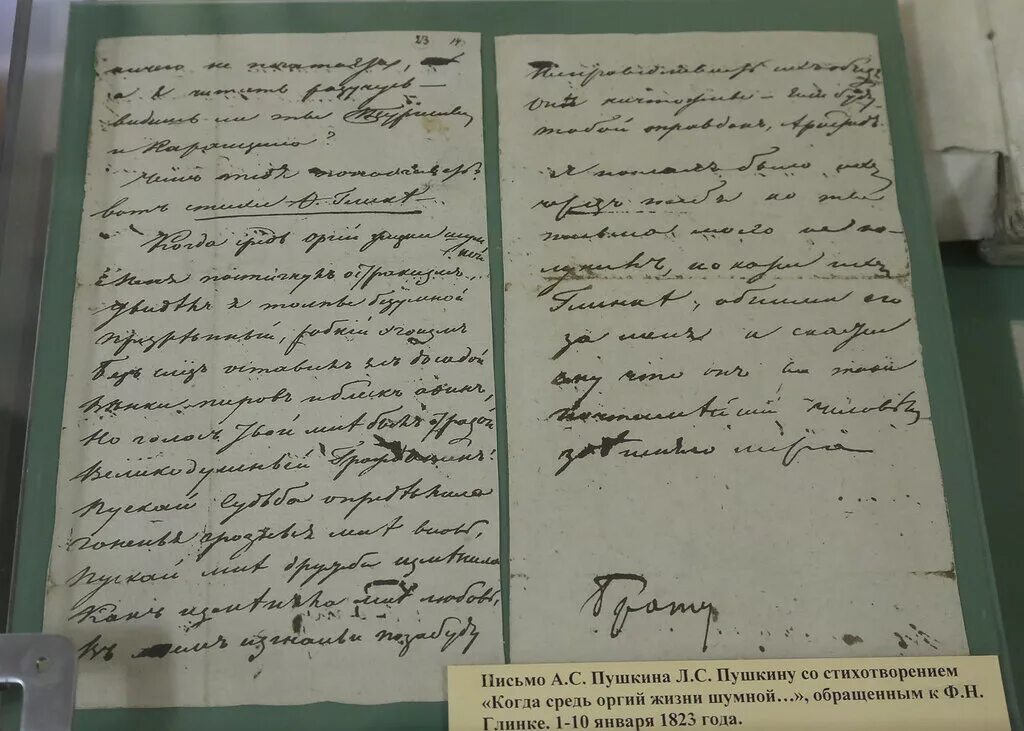 23 14
ничего не печатаетъ,
а я читать разучусь —
видишь ли ты Тургенева
и Карамзина?
Чѣмъ тебѣ попотчивать?
вотъ стихи Ѳ. Глинкѣ
Когда средь оргій жизни шум
ной
Меня постигнулъ остракизмъ,
Увидѣлъ я толпы безумной
Презрѣнный, робкій эгоизмъ
Безъ слезъ оставилъ я съ досадой
Вѣнки пировъ и блескъ Афинъ,
Но голосъ твой мнѣ былъ отрадой
Великодушный Гражданинъ!
Пускай Судьба опредѣлила
Гоненья грозныя мнѣ вновь,
Пускай мнѣ дружба измѣнила
Какъ измѣняла мнѣ любовь,
Въ моемъ изгнаньи позабуду
Несправедливость ихъ обидъ
Онѣ ничтожны — если буду
тобой оправданъ, Аристидъ
я послалъ было ихъ
черезъ тебя но ты
письма моего не по-
лучилъ, покажи ихъ
Глинкѣ, обними его
за меня и скажи
ему что онъ все таки
почтеннѣйшій человѣкъ
здѣшняго міра
Брату
Письмо А.С. Пушкина Л.С. Пушкину со стихотворением
«Когда средь оргий жизни шумной...», обращенным к Ф.Н.
Глинке. 1-10 января 1823 года.